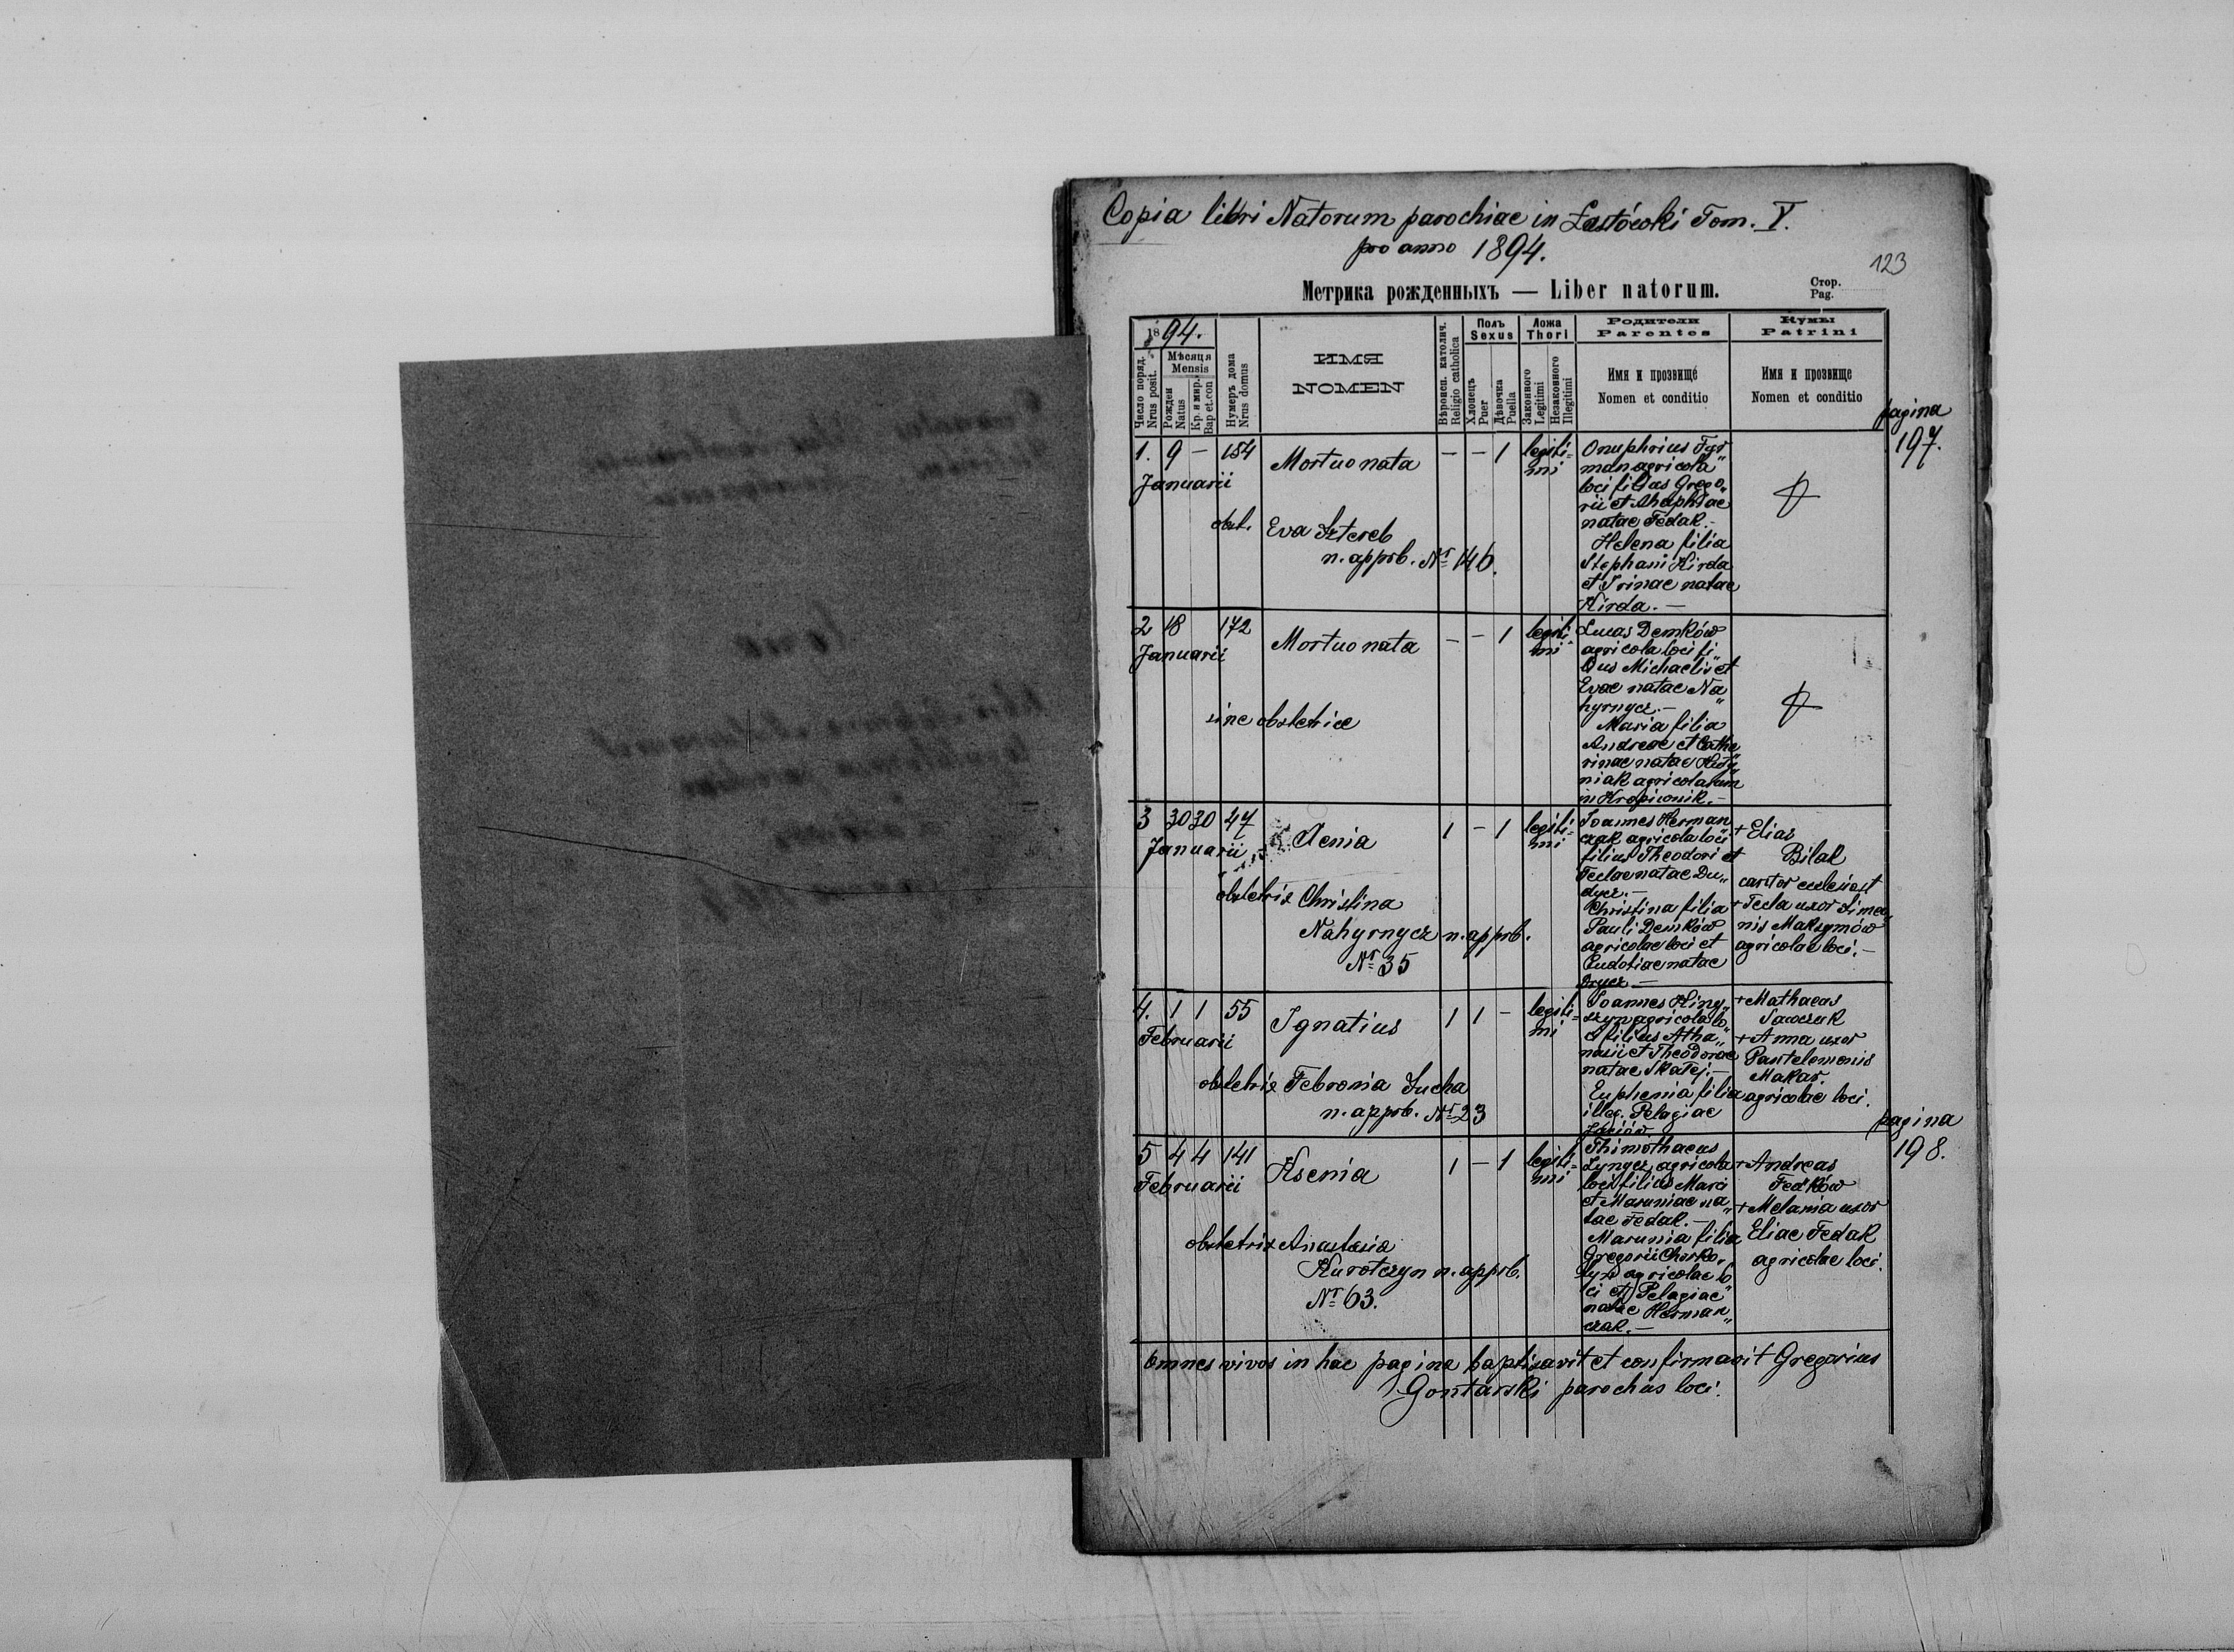 Copia libri Natorum parochiae in Łastówki Tom. V.
pro anno 1894.
123
Метрика рожденныхъ — Liber natorum.
Стор.
Pag.
1894.
Число поряд.
Nrus posit.
Мѣсяця
Mensis
Рожден
Natus
Кр. и мир.
Bap et.con
Нумеръ дома
Nrus domus
ИМЯ
NOMEN
Вѣроисп. католич.
Religio catholica
Полъ
Sexus
Хлопецъ
Puer
Дѣвочка
Puella
Ложа
Thori
Законного
Legitimi
Незаконного
Illegitimi
Родители
Parentes
Имя и прозвище
Nomen et conditio
Кумы
Patrini
Имя и прозвище
Nomen et conditio
pagina
197.
1. 9 — 154
Januarii
Mortuo nata
— — 1 legiti=
mi
obst. Eva Sztereb
n. approb. Nr 146.
Onuphrius Tyr„
man agricola
loci filius Grego„
rii et Ahaphiae
natae Fedak.—
Helena filia
Stephani Kirda
et Irinae natae
Kirda.—
2 18 172
Januarii
Mortuo nata
— — 1 legiti=
mi
sine obstetrice
Lucas Demków
agricola loci fi„
lius Michaelis et
Evae natae Na„
hyrnycz.—
Maria filia
Andreae et Cathe„
rinae natae
niak agricolarum
in Kropiwnik.—
3 30 30 47
Januarii
Xenia
1 — 1 legiti=
mi
obstetrix Christina
Nahyrnycz n. approb.
Nr 35
Joannes Herman„
czak agricola loci
filius Theodori et
Teclae natae Du„
dycz.—
Christina filia
Pauli Demków
agricolae loci et
Eudotiae natae
Drycz.—
+ Elias
Bilak
cantor eccleiast
+ Tecla uxor Simeo„
nis Maksymów
agricolae loci.—
4. 1 1 55
Februarii
Ignatius
1 1 — legiti=
mi
obstetrix Febronia Sucha
n. approb. Nr 23
Joannes Hiny„
szyn agricola lo„
ci filius Atha„
nasii et Theodorae
natae Skałej.—
Euphemia filia
illeg. Pelagiae
+ Mathaeus
Sawczuk
+ Anna uxor
Pantelemonis
Makar.
agricolae loci.
pagina
198.
5 4 4 141
Februarii
Ksenia
1 — 1 legiti=
mi
obstetrix Anastasia
Kurotczyn n. approb.
Nr 63.
Thimothaeus
Łynycz, agricola
loci filius Marci
et Maruniae na„
tae Fedak.—
Marunia filia
Gregorii Chorko„
łyn agricolae lo„
ci et Pelagiae
natae Herman„
czak.—
+ Andreas
Fedków
+ Melania uxor
Eliae Fedak
agricolae loci.
Omnes vivos in hac pagina baptisavit et confirmavit Gregorius
Gontarski parochus loci.